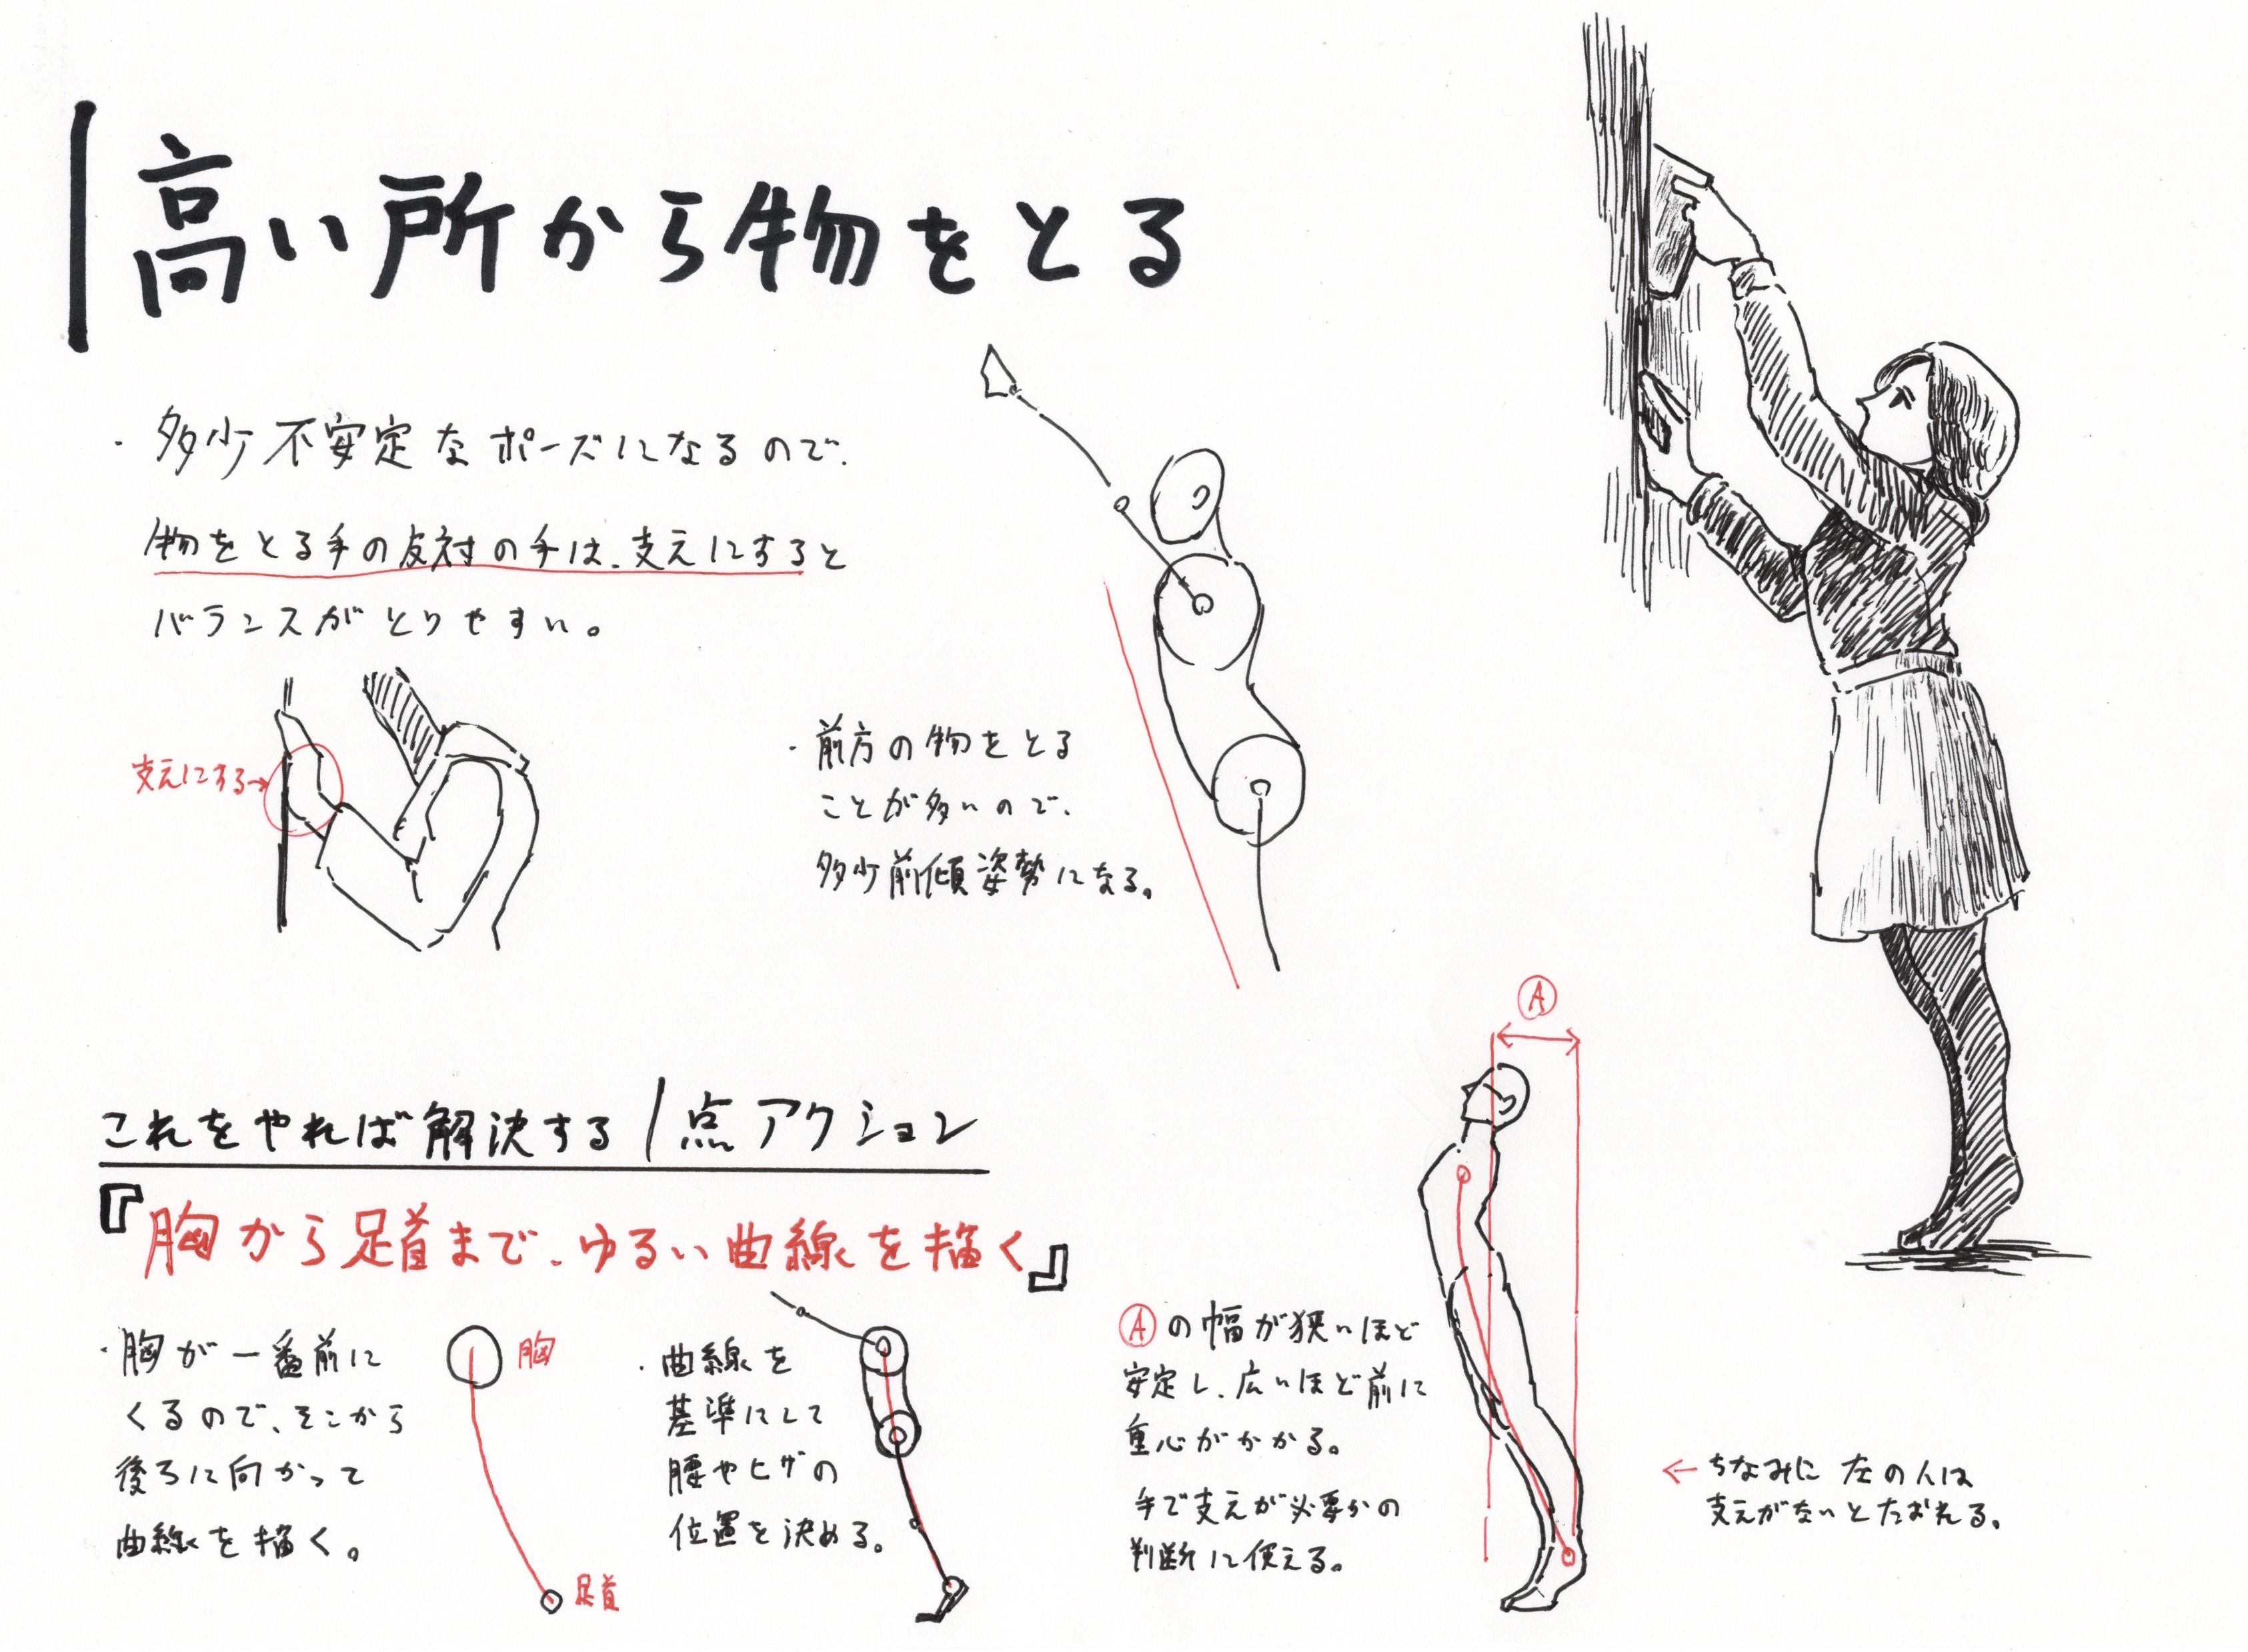 高い所から物をとる
・多少不安定なポーズになるので、
物をとる手の反対の手は、支えにすると
バランスがとりやすい。
支えにする→
・前方の物をとる
ことが多いので、
多少前傾姿勢になる。
これをやれば解決する1点アクション
『胸から足首まで、ゆるい曲線を描く』
・胸が一番前に
くるので、そこから
後ろに向かって
曲線を描く。
胸
足首
・曲線を
基準にして
腰やヒザの
位置を決める。
Ⓐ
Ⓐの幅が狭いほど
安定し、広いほど前に
重心がかかる。
手で支えが必要かの
判断に使える。
←ちなみに左の人は
支えがないとたおれる。